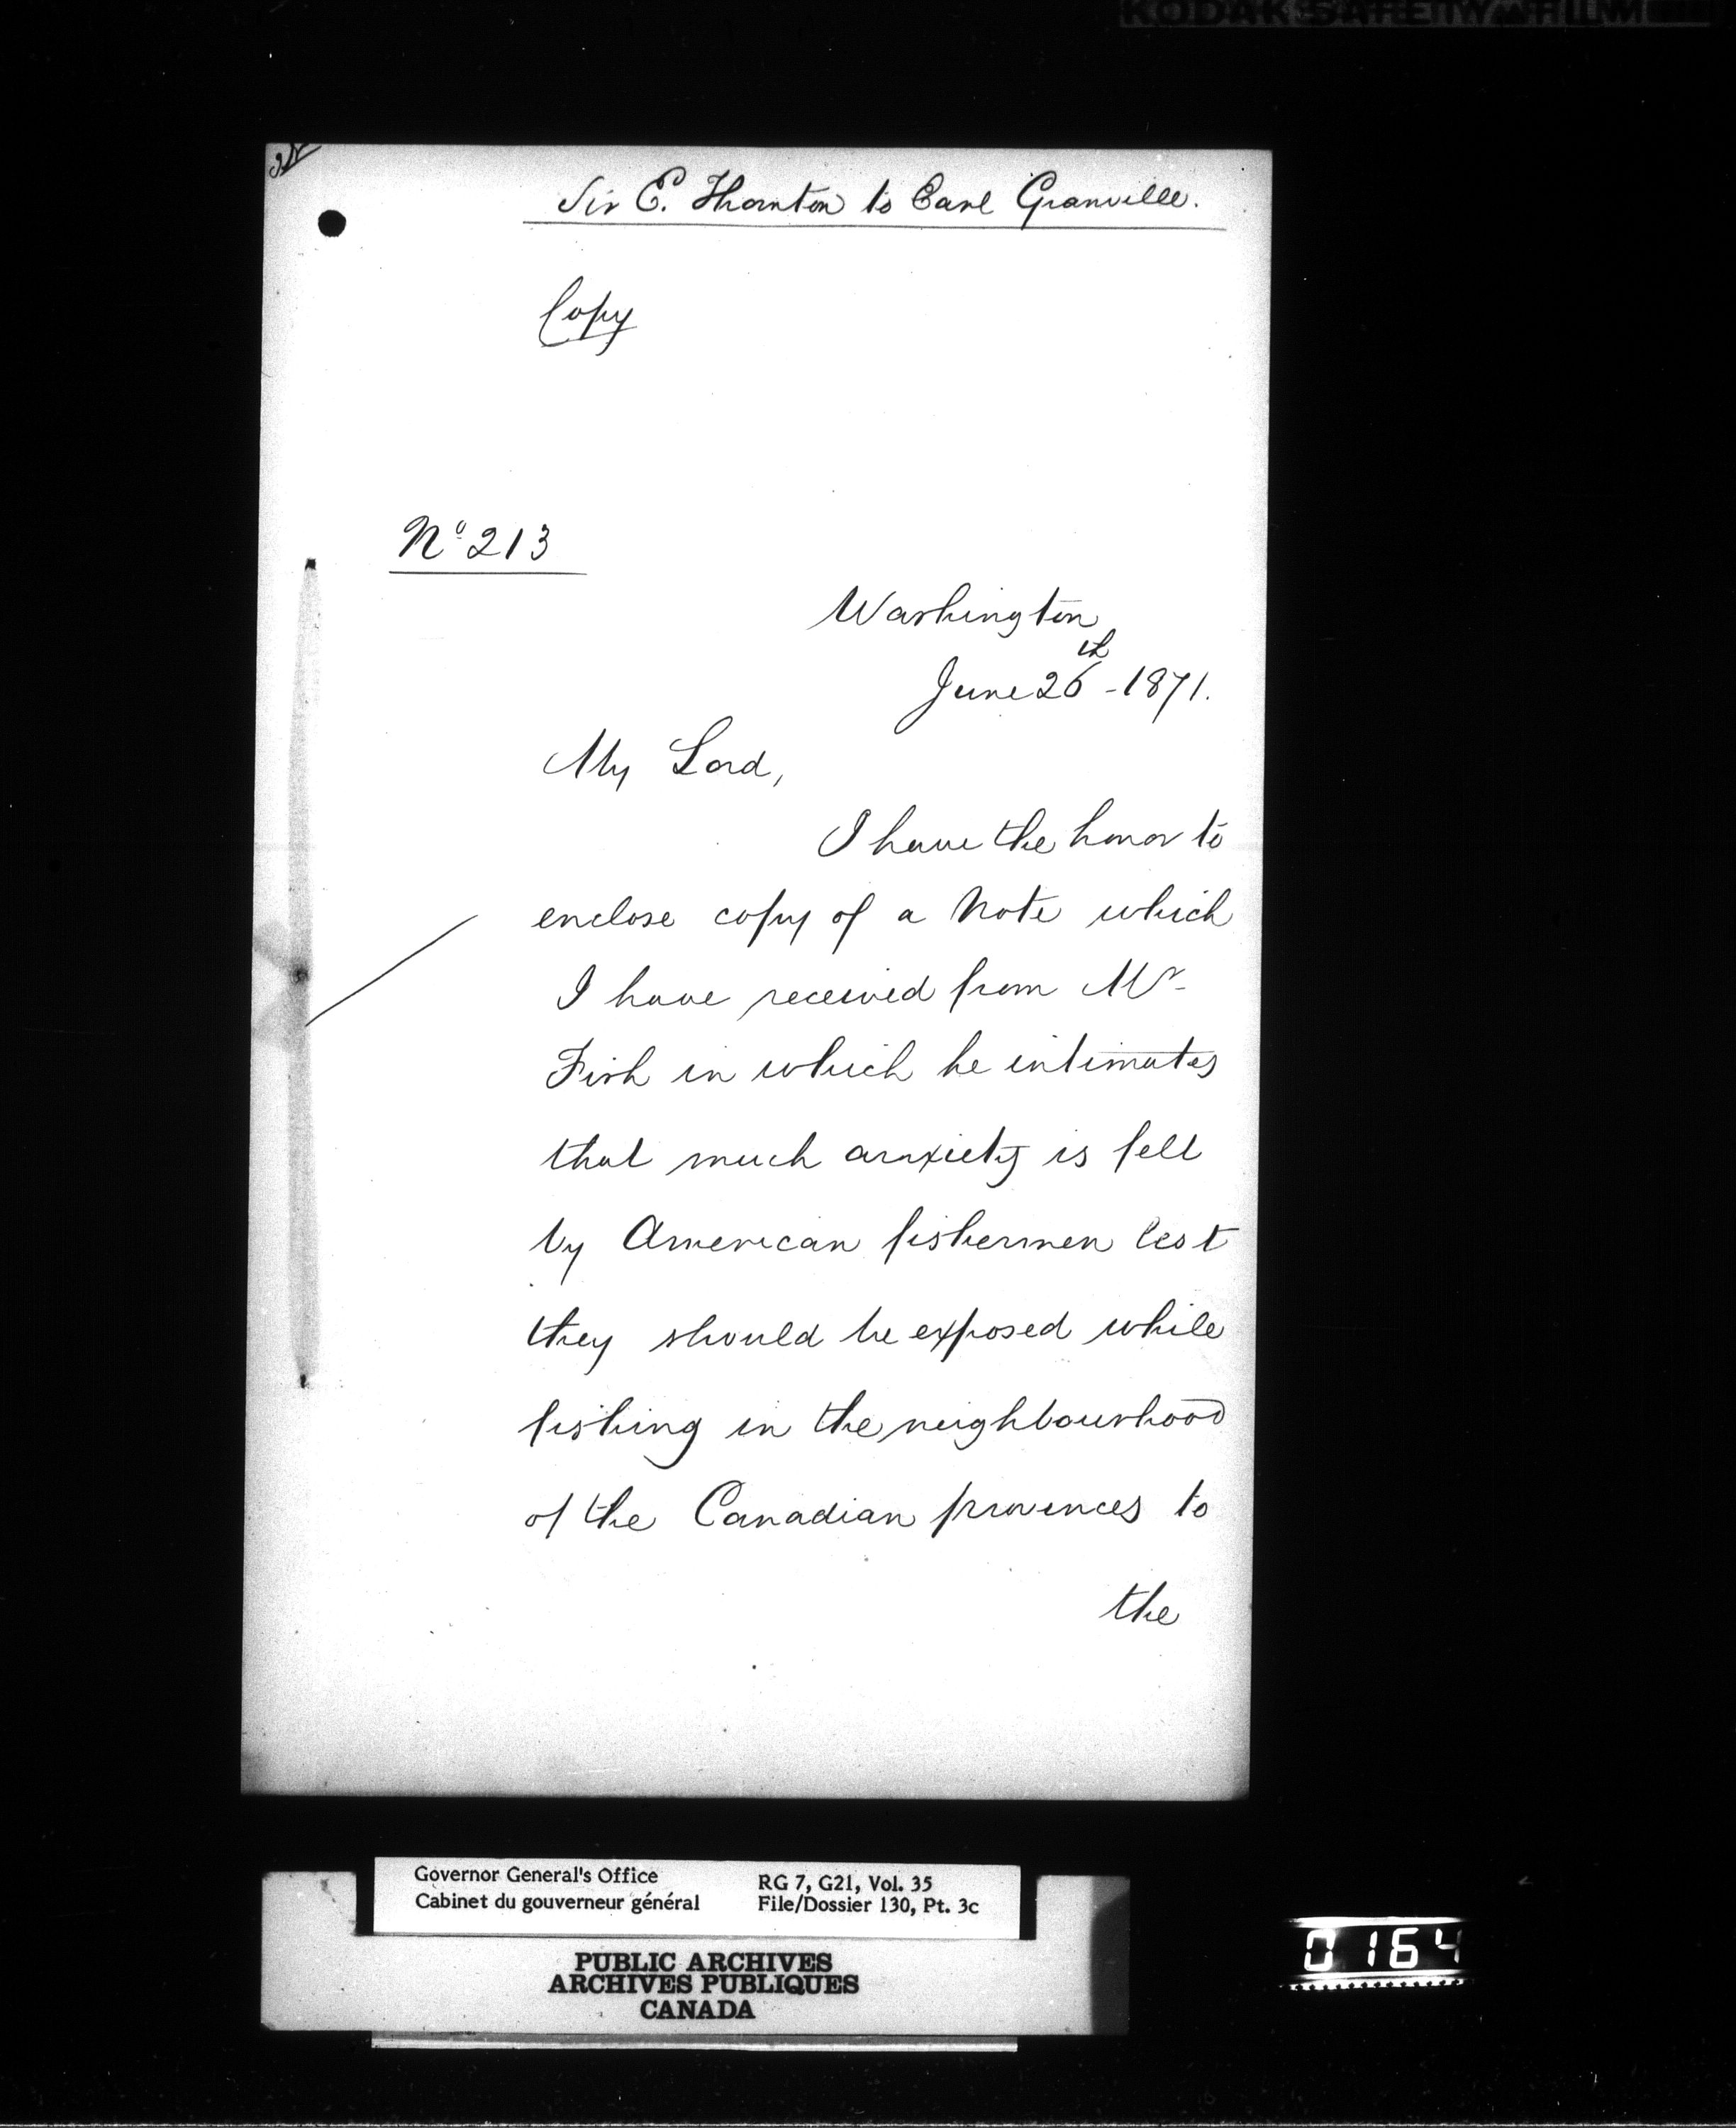 KODAK SAFETY FILM
Sir E. Thornton to Earl Granville.
Copy
Nº 213
Washington
June 26th - 1871.
My Lord,
I have the honor to
enclose copy of a Note which
I have received from Mr
Fish in which he intimates
that much anxiety is felt
by American fishermen lest
they should be exposed while
fishing in the neighbourhood
of the Canadian provinces to
the
Governor General's Office
Cabinet du gouverneur général
RG 7, G21, Vol. 35
File/Dossier 130, Pt. 3c
PUBLIC ARCHIVES
ARCHIVES PUBLIQUES
CANADA
0164